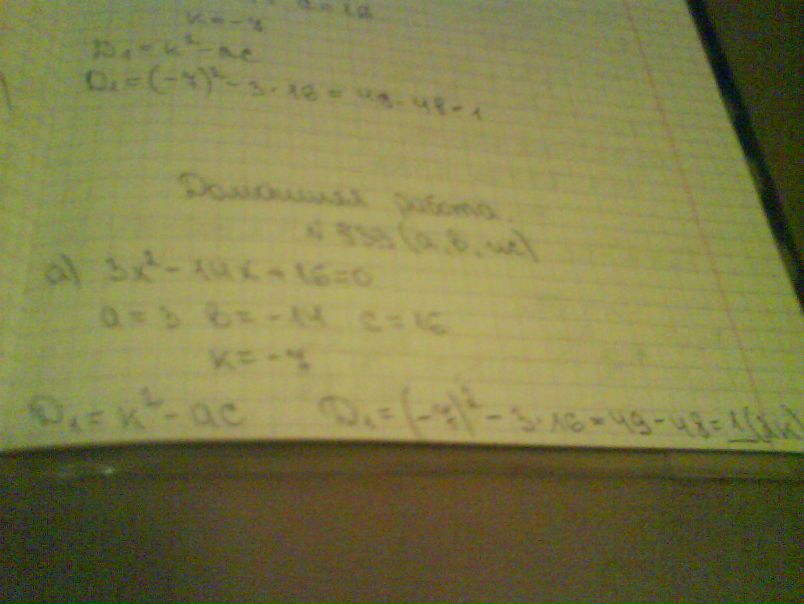 k = -7
D₁ = k² - ac
D₁ = (-7)² - 3 · 16 = 49 - 48 - 1
Домашняя работа.
а) 3x² - 14x + 16 = 0
a = 3 в = -14 c = 16
k = -7
D₁ = k² - ac D₁ = (-7)² - 3 · 16 = 49 - 48 = 1 (2к)